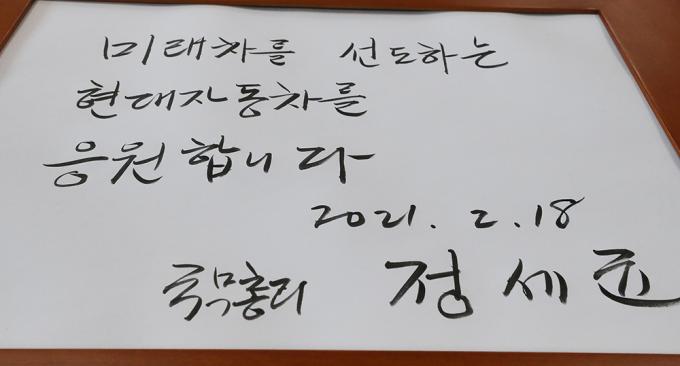 미래차를 선도하는
현대자동차를
응원합니다
2021. 2. 18
국무총리 정세균